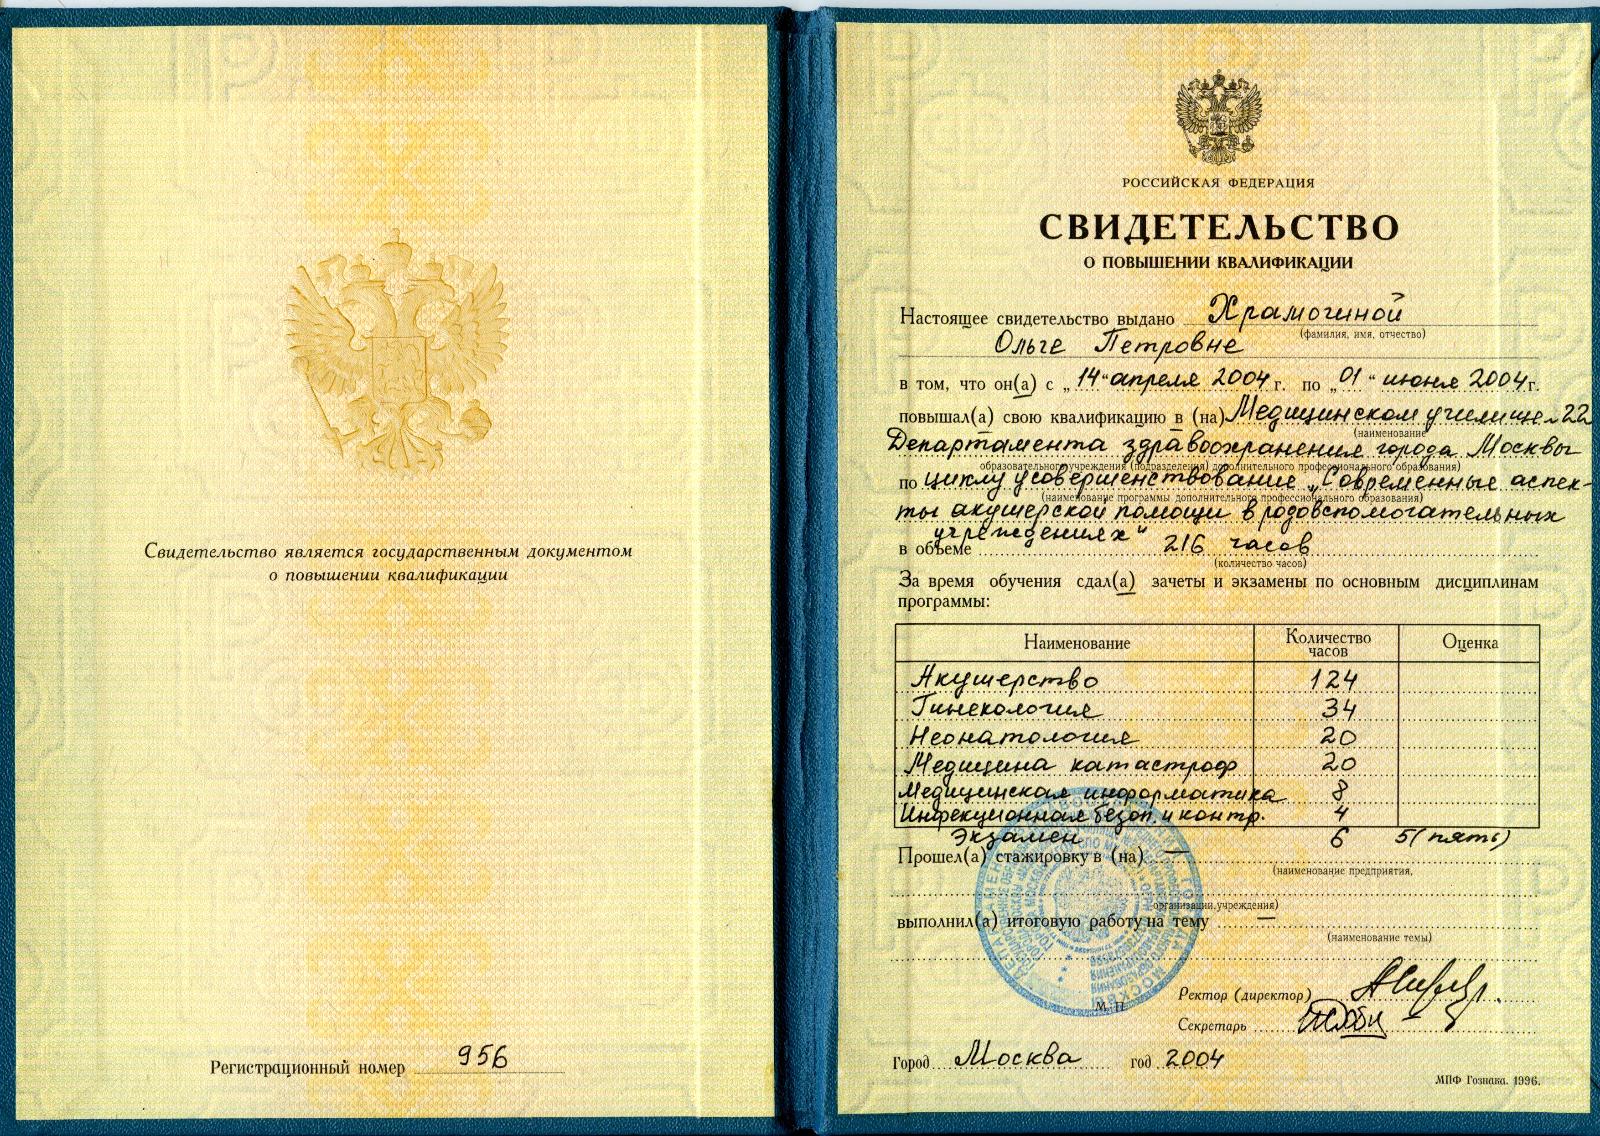 Свидетельство является государственным документом
о повышении квалификации
Регистрационный номер 956
РОССИЙСКАЯ ФЕДЕРАЦИЯ
СВИДЕТЕЛЬСТВО
О ПОВЫШЕНИИ КВАЛИФИКАЦИИ
Настоящее свидетельство выдано Храмогиной
(фамилия, имя, отчество)
Ольге Петровне
в том, что он(а) с „14“ апреля 2004 г. по „01“ июня 2004 г.
повышал(а) свою квалификацию в (на) Медицинском училище 22
(наименование
Департамента здравоохранения города Москвы
образовательного учреждения (подразделения) дополнительного профессионального образования)
по циклу усовершенствование „Современные аспек-
(наименование программы дополнительного профессионального образования)
ты акушерской помощи в родовспомогательных
учреждениях“
в объеме 216 часов
(количество часов)
За время обучения сдал(а) зачеты и экзамены по основным дисциплинам
программы:
Наименование Количество часов Оценка
Акушерство 124
Гинекология 34
Неонатология 20
Медицина катастроф 20
Медицинская информатика 8
Инфекционная безоп. и контр. 4
Экзамен 6 5 (пять)
Прошел(а) стажировку в (на) —
(наименование предприятия,
организации, учреждения)
выполнил(а) итоговую работу на тему —
(наименование темы)
М. П.
Ректор (директор)
Секретарь
Город Москва год 2004
МПФ Гознака. 1996.